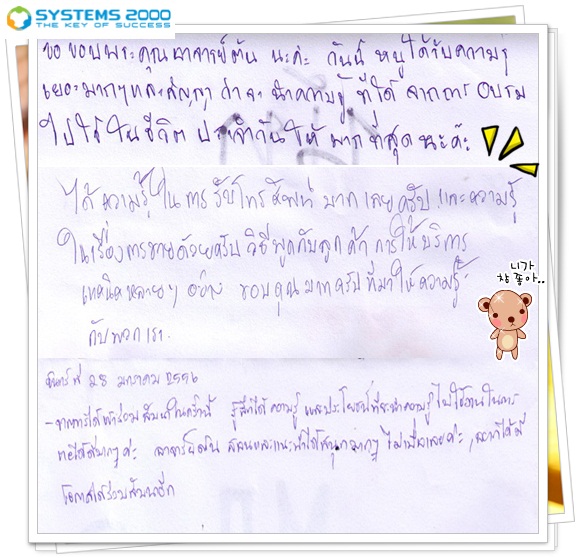 SYSTEMS 2000
THE KEY OF SUCCESS
ขอขอบพระคุณอาจารย์ต้น นะค่ะ วันนี้ หนูได้รับความรู้
เยอะมากๆและสัญญา ว่าจะ นำความรู้ ที่ได้ จากการ อบรม
ไปใช้ในชีวิต ประจำวันให้ มากที่สุด นะค๊ะ
ได้ความรู้ในการ รับโทรศัพท์ มากเลยครับ และความรู้
ในเรื่องการขายด้วยครับ วิธีพูดกับลูกค้า การให้บริการ
เทคนิคหลายๆ อย่าง ขอบคุณมากครับที่มาให้ความรู้
กับพวกเรา.
니가
참 좋아..
จันทร์ที่ 28 มกราคม 2556
- จากการได้เข้าร่วมสัมนาในครั้งนี้ รู้สึกได้ความรู้ และประโยชน์ที่จะนำความรู้ไปใช้งานในการ
ได้ดีมากๆค่ะ อาจารย์ต้น สอนและแนะนำได้สนุกมากๆ ไม่เบื่อเลยค่ะ,
โอกาสได้ร่วมสัมนาอีก